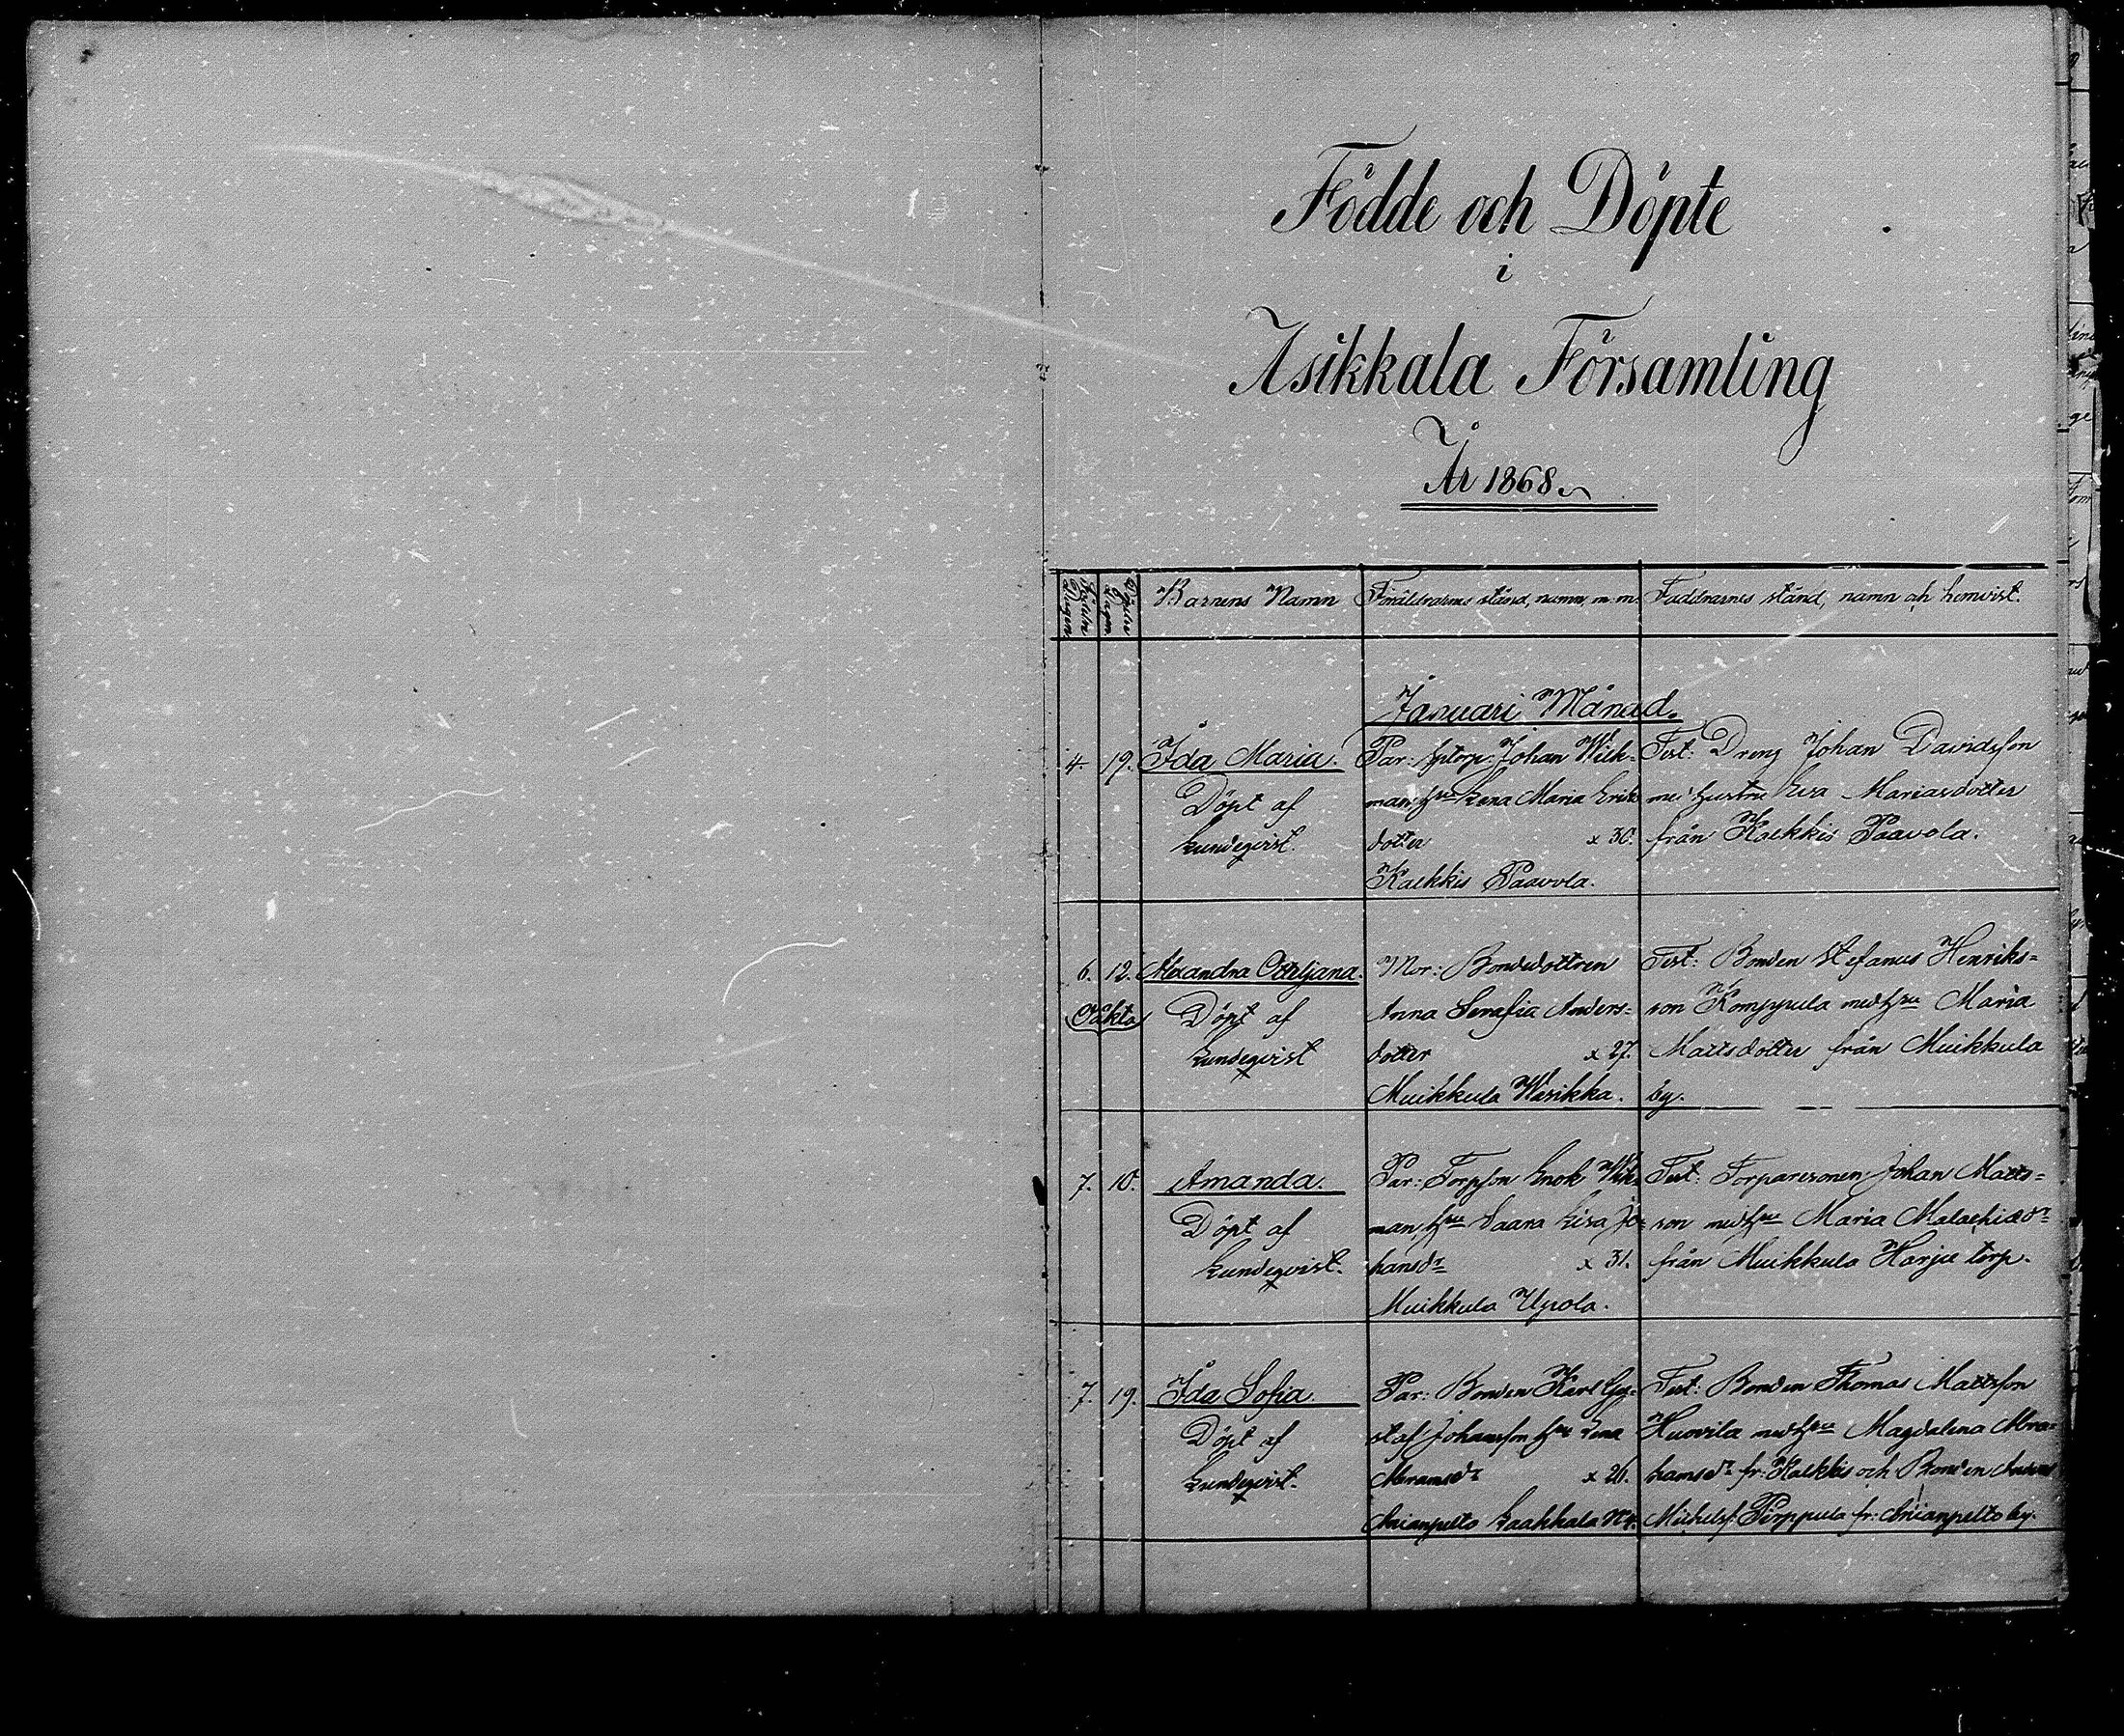 Födde och Döpte
i
Asikkala Församling
År 1868.
Födelse Dagen
Döpelse Dagen
Barnens Namn
Föräldrarnes stånd, namn, m.m.
Faddrarnes stånd, namn och hemvist.
Januari Månad.
4. 19. Ida Maria.
Döpt af
Lundeqvist.
Par: Johan Wick-
man, hru Lena Maria Eriks
dotter x 30.
Kalkkis Paavola.
Test: Dreng Johan Davidsson
med hustru Eva Mariasdotter
från Kalkkis Paavola.
6. 12. Alexandra Ottiljana.
Oäkta
Döpt af
Lundeqvist
Mor: Bondedottren
Anna Serafia Anders-
dotter x 27.
Muikkula Warikka.
Test: Bonden Stefanus Henriks-
son Komppula med hru Maria
Mattsdotter från Muikkula
by.
7. 10. Amanda.
Döpt af
Lundeqvist.
Par: Torpson Enok Wik-
man, hru Saara Lisa Jo-
hansdr x 31.
Muikkula Ypola.
Test: Torparesonen Johan Matts-
son med hru Maria Malachiædr
från Muikkula Harju torp.
7. 19. Ida Sofia.
Döpt af
Lundeqvist.
Par: Bonden Karl Gu-
staf Johansson hru Lena
Abramsdr x 26.
Anianpelto Laakkala
Test: Bonden Thomas Mattsson
Huovila med hru Magdalena Abra-
hamsdr fr: Kalkkis och Bonden Anders
Michelss. Pirppula fr: Anianpelto by.